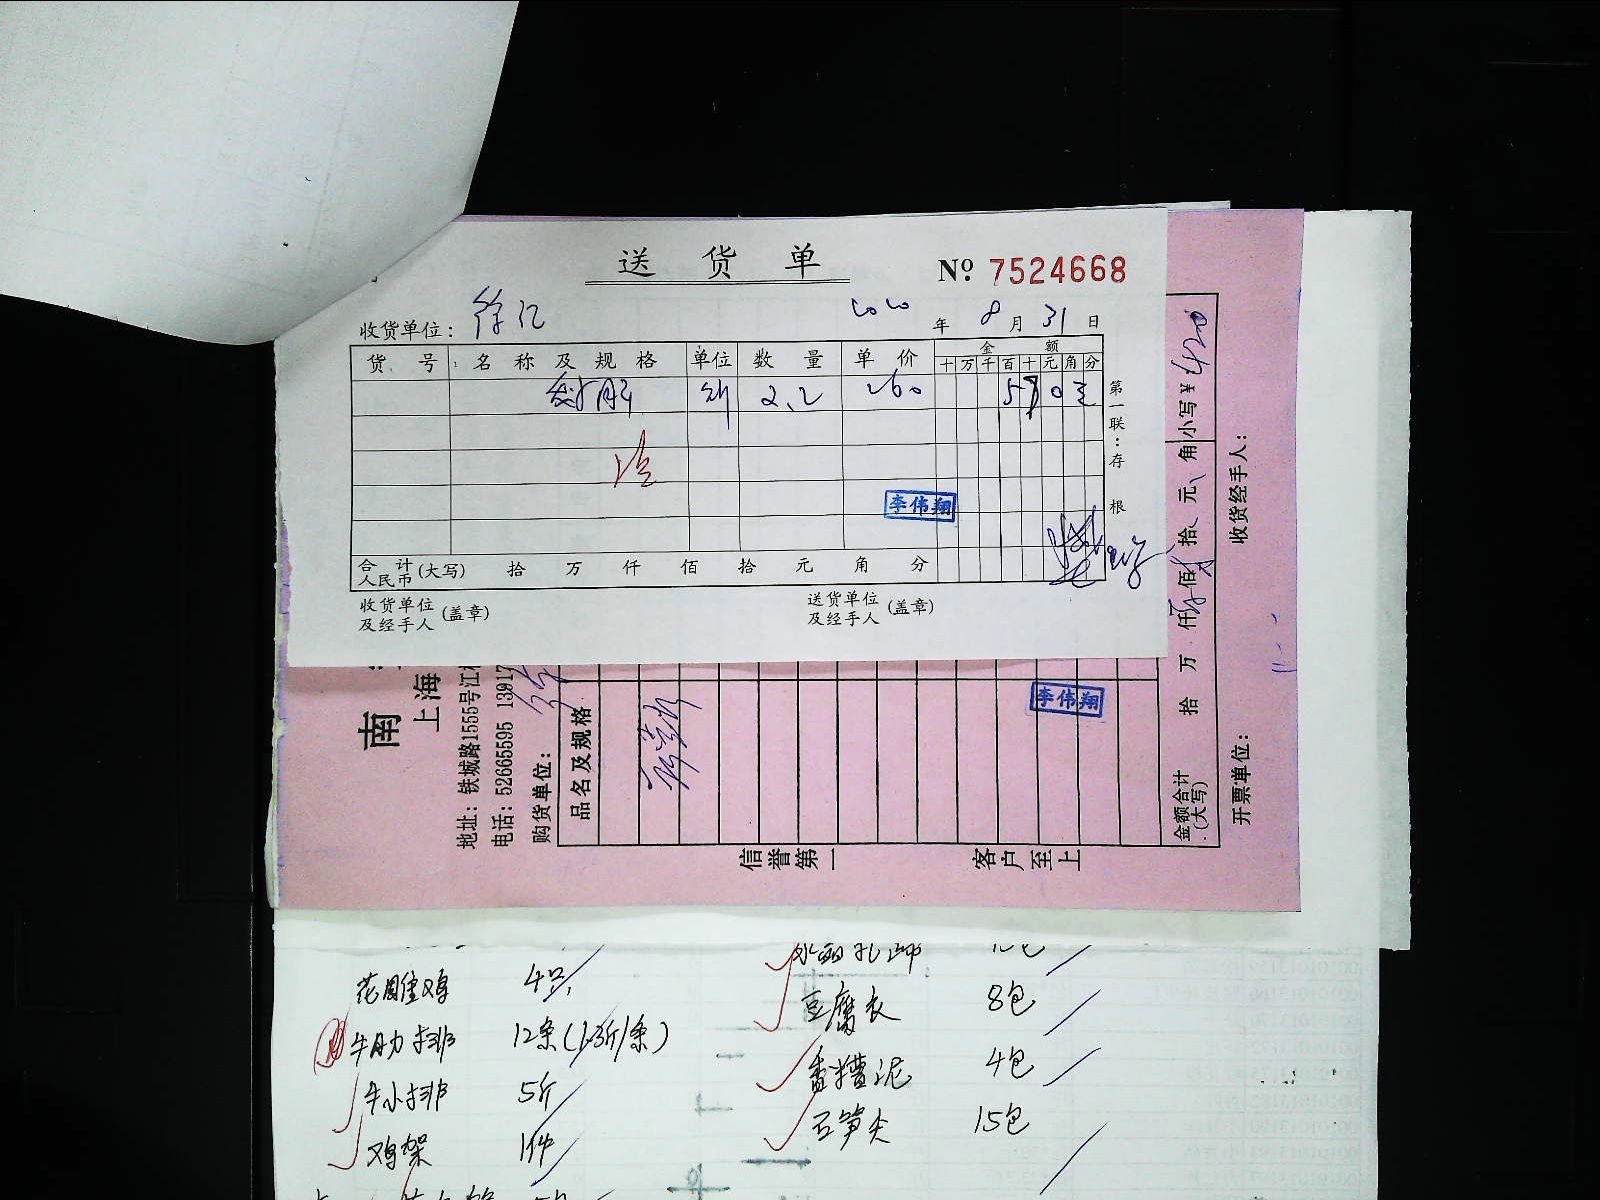 送货单 Nº 7524668
收货单位：徐记 2020年8月31日
货号 名称及规格 单位 数量 单价 金额
十万千百十元角分
斤 2.2 260
李伟翔
第一联：存根
合计人民币(大写) 拾 万 仟 佰 拾 元 角 分
收货单位及经手人(盖章) 送货单位及经手人(盖章)
南
上海
地址：铁城路1555号江
电话：52665595 13917
购货单位：
品名及规格
李伟翔
金额合计(大写) 拾 万 仟 佰 拾 元 角 小写¥ 420
开票单位： 收货经手人：
信誉第一 客户至上
花雕鸡 4只
牛肋排 12条(1.3斤/条)
牛小排 5斤
鸡架 1件
豆腐衣 8包
香糟泥 4包
石笋尖 15包